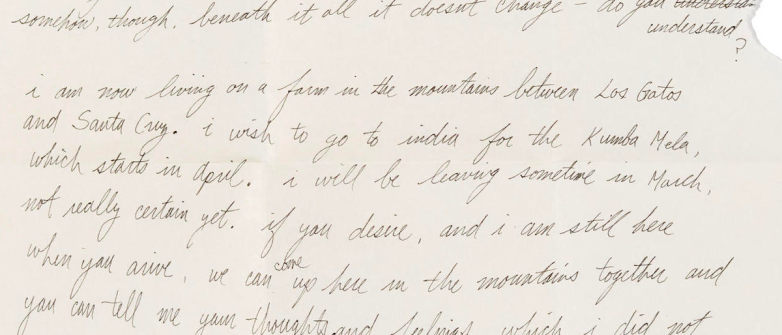 somehow, though. beneath it all it doesnt change – do you understa-
understand
?
i am now living on a farm in the mountains between Los Gatos
and Santa Cruz. i wish to go to india for the Kumba Mela,
which starts in April. i will be leaving sometime in March,
not really certain yet. if you desire, and i am still here
when you arive, we can come up here in the mountains together and
you can tell me your thoughts and feelings which i did not